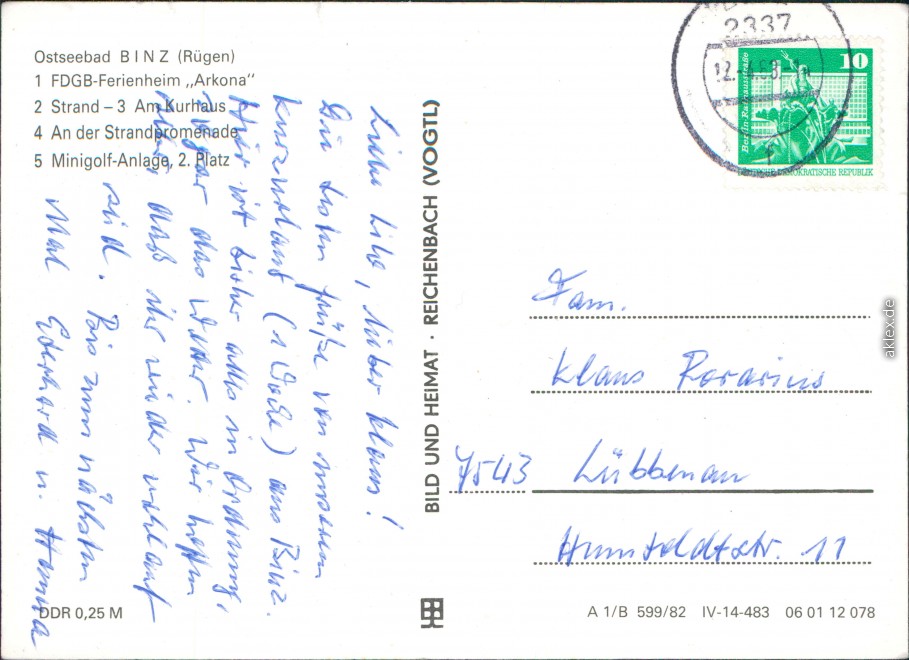 Ostseebad BINZ (Rügen)
1 FDGB-Ferienheim „Arkona“
2 Strand – 3 Am Kurhaus
4 An der Strandpromenade
5 Minigolf-Anlage, 2. Platz
Liebe Lilo, lieber Klaus!
Die besten Grüße von unserem
Kurzurlaub (1 Woche) aus Binz.
Hier ist bisher alles in Ordnung,
sogar das Wetter. Wir hoffen
daß ihr wieder wohlauf
seid. Bis zum nächsten
Mal Eberhard u. Hanna
DDR 0,25 M
BILD UND HEIMAT · REICHENBACH (VOGTL)
2337
10
Berlin, Rathausstraße
DEMOKRATISCHE REPUBLIK
Fam.
Klaus Rorarius
7543 Lübbenau
Humboldtstr. 11
A 1/B 599/82 IV-14-483 06 01 12 078
aklex.de